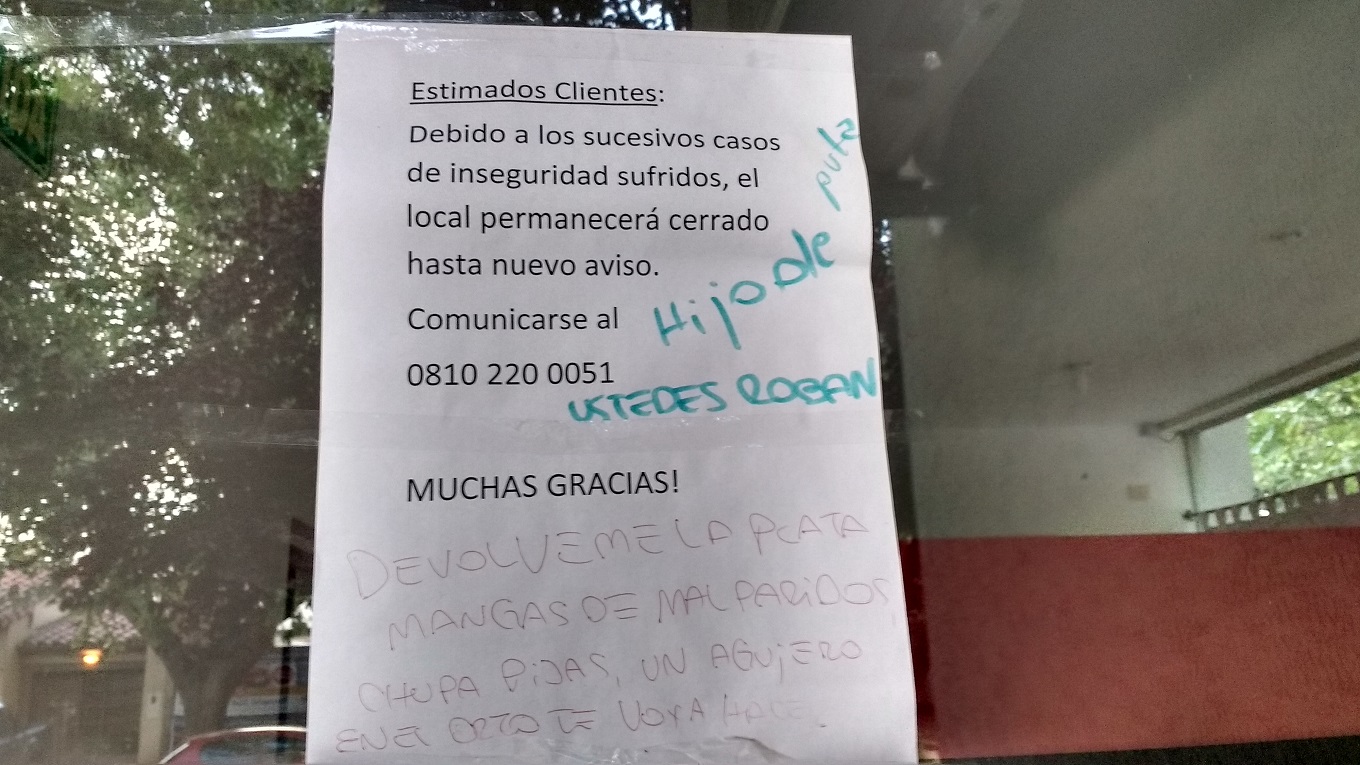 Estimados Clientes:
Debido a los sucesivos casos
de inseguridad sufridos, el
local permanecerá cerrado
hasta nuevo aviso.
Comunicarse al
0810 220 0051
Hijo de puta
USTEDES ROBAN
MUCHAS GRACIAS!
DEVOLVEME LA PLATA
MANGAS DE MALPARIDOS
CHUPA PIJAS, UN AGUJERO
EN EL ORTO TE VOY A